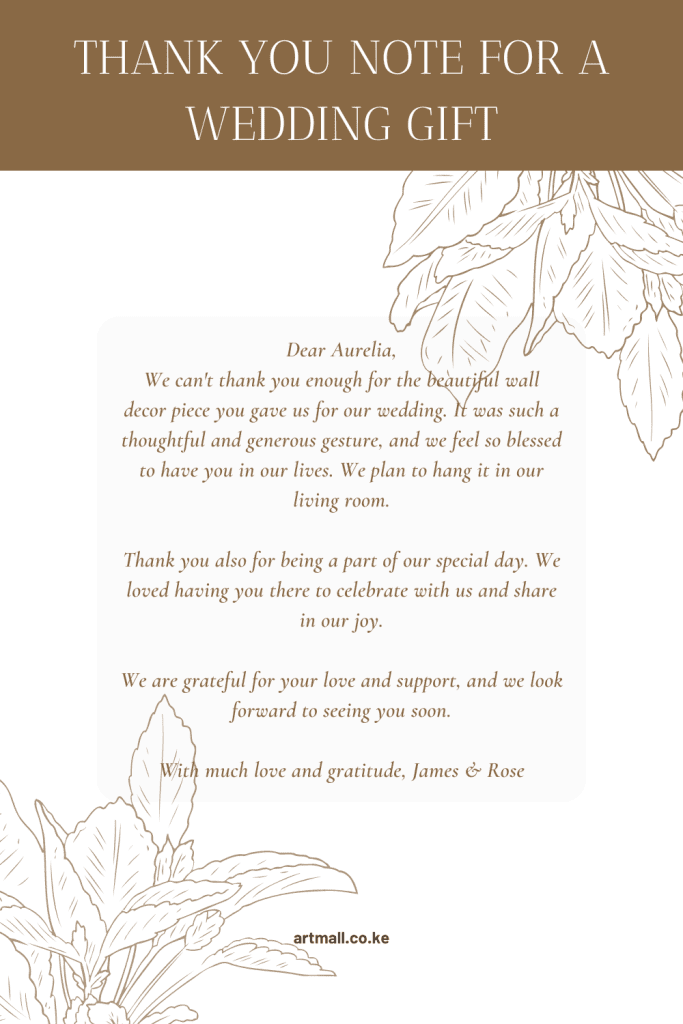 THANK YOU NOTE FOR A
WEDDING GIFT
Dear Aurelia,
We can't thank you enough for the beautiful wall
decor piece you gave us for our wedding. It was such a
thoughtful and generous gesture, and we feel so blessed
to have you in our lives. We plan to hang it in our
living room.
Thank you also for being a part of our special day. We
loved having you there to celebrate with us and share
in our joy.
We are grateful for your love and support, and we look
forward to seeing you soon.
With much love and gratitude, James & Rose
artmall.co.ke